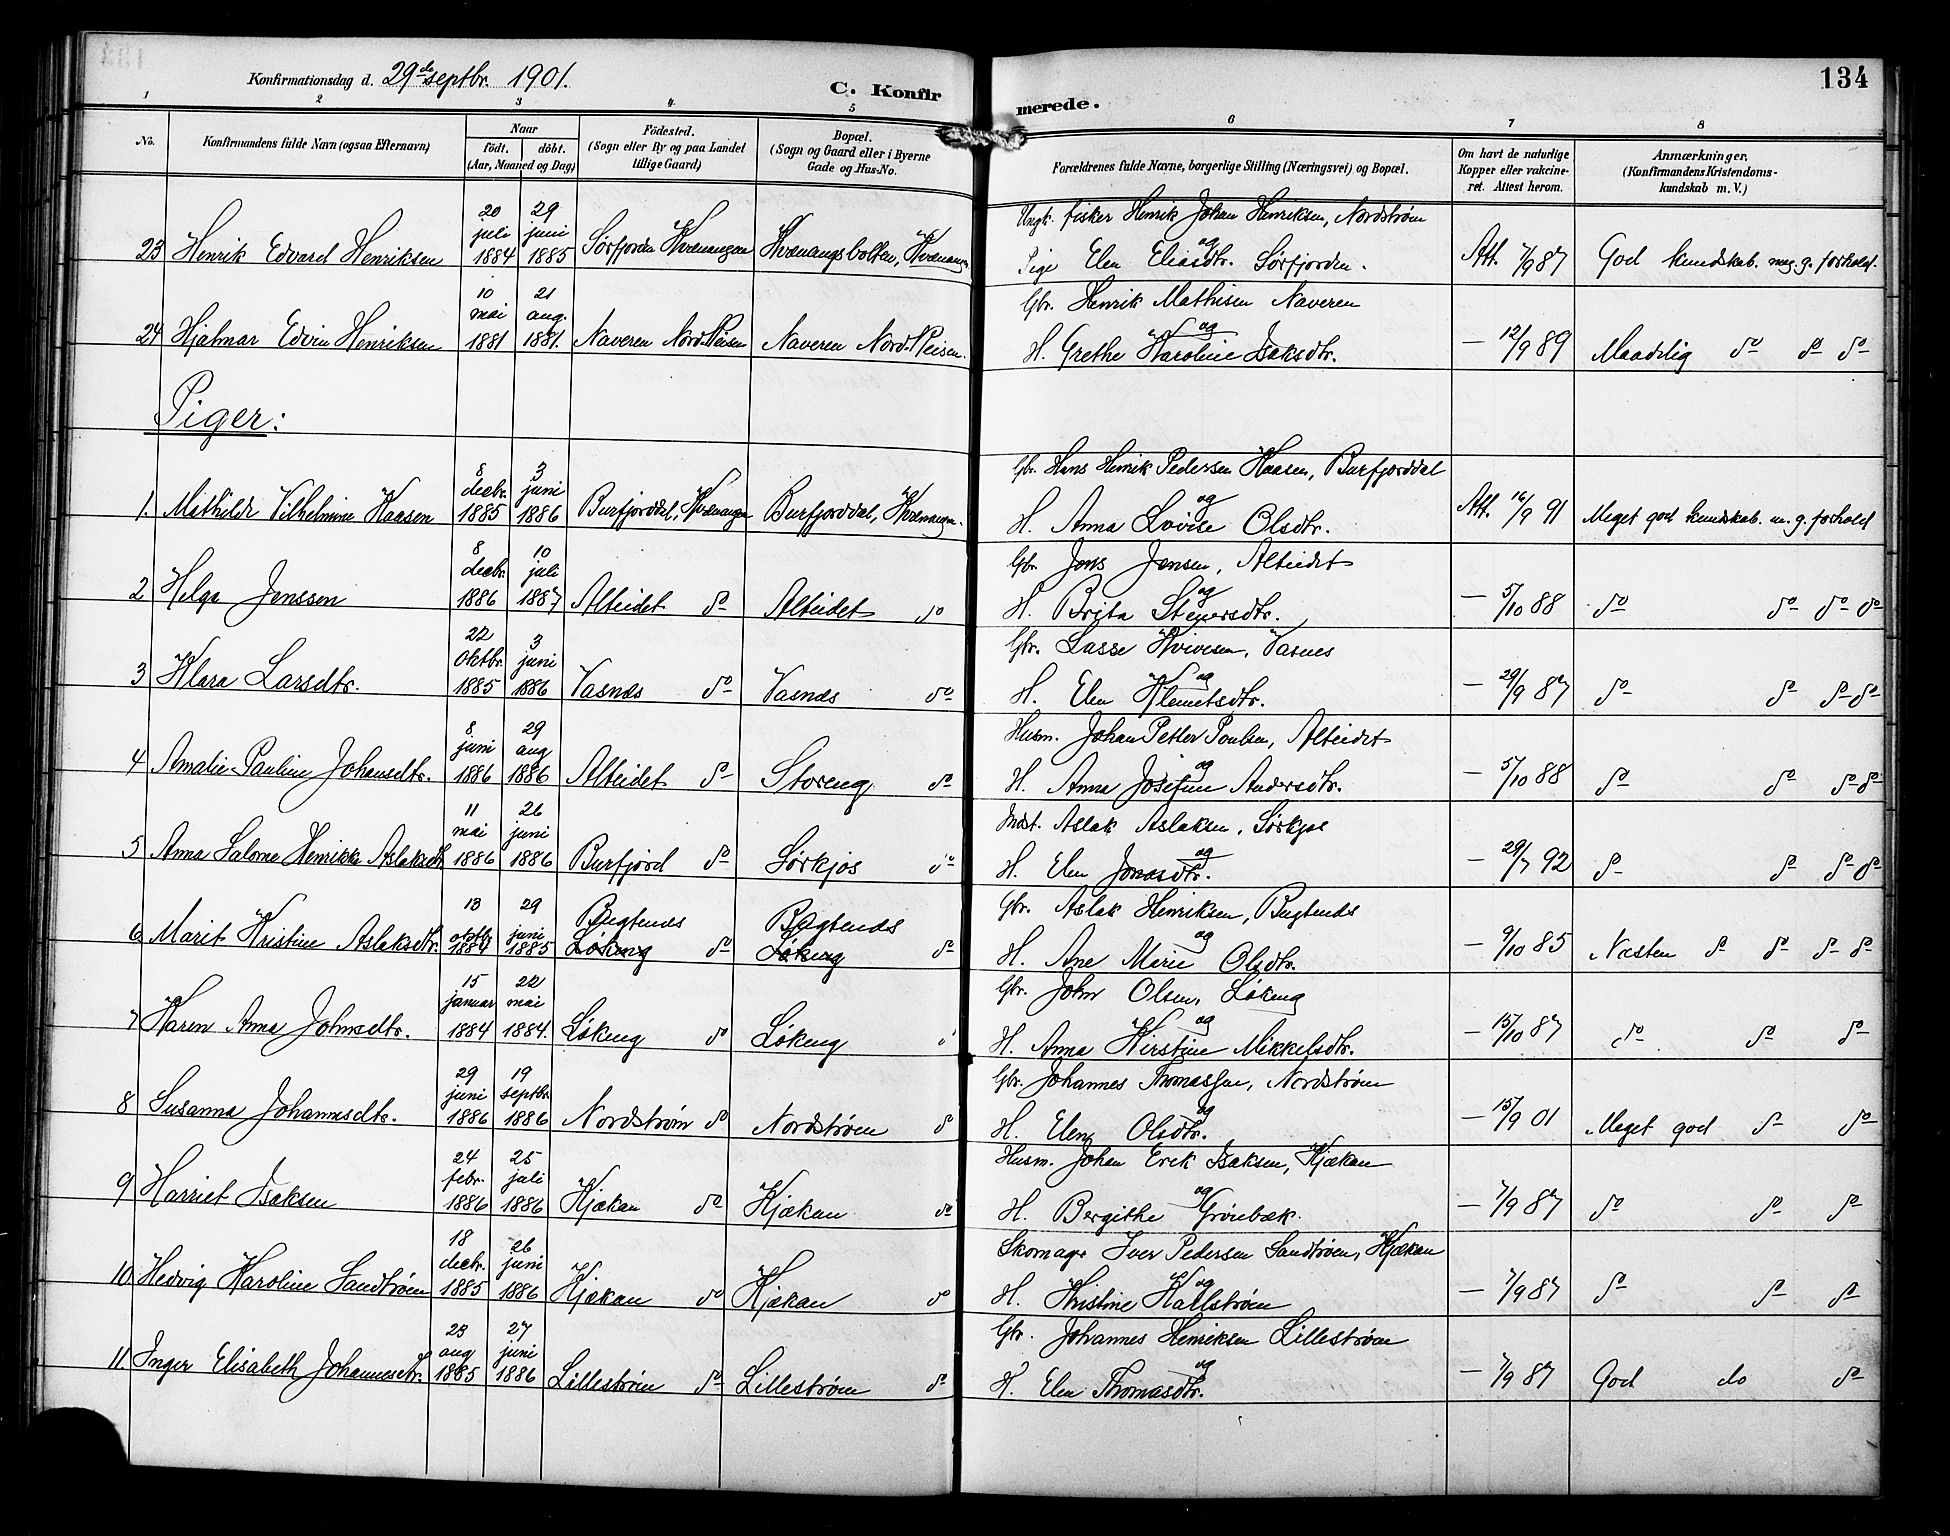 134
Konfirmationsdag d. 29de septbr. 1901.
C. Konfirmerede.
1 2 3 4 5 6 7 8
No. Konfirmandens fulde Navn (ogsaa Efternavn) Naar födt. döbt. (Aar, Maaned og Dag) Födested. (Sogn eller By og paa Landet tillige Gaard) Bopæl. (Sogn og Gaard eller i Byerne Gade og Hus-No. Forældrenes fulde Navne, borgerlige Stilling (Næringsvei) og Bopæl. Om havt de naturlige Kopper eller vaccineret. Attest herom. Anmærkninger. (Konfirmandens Kristendomskundskab m. V.)
23 Henrik Edvard Henriksen 20 juli 1884 29 juni 1885 Sørfjorden Kvænangen Kvænangsbotten, Kvænangen Ungk. fisker Henrik Johan Henriksen, Nordstrøm og Pige Elen Eliasdtr. Sørfjorden. Att. 7/9 87 God kundskab. meg. g. forhold.
24 Hjalmar Edvin Henriksen 10 mai 1881 21 aug. 1881. Naveren Nord-Reisen Naveren Nord-Reisen. Gbr. Henrik Mathisen Naveren og H. Grethe Karoline Isaksdtr. — 12/9 89 Maadelig do do do
Piger:
1. Mathilde Vilhelmine Haasen 8 decbr. 1885 3 juni 1886 Burfjorddal, Kvænangen Burfjorddal, Kvænangen. Gbr. Hans Henrik Pedersen Haasen, Burfjorddal og H. Anna Lovise Olsdtr. Att. 16/9 91 Meget god kundskab. m. g. forhold
2 Helga Jenssen 8 decbr. 1886 10 juli 1887 Alteidet do Alteidet do Gbr. Jens Jensen, Alteidet og H. Brita Steversdtr. — 5/10 88 do do do do
3 Klara Larsdtr. 22 oktbr. 1885 3 juni 1886 Vasnæs do Vasnæs do Gbr. Lasse Kvivesen, Vasnes og H. Elen Klemetsdtr. — 29/9 87 do do do do
4 Amalie Pauline Johansdtr. 8 juni 1886 29 aug 1886 Alteidet do Storeng do Husm. Johan Petter Poulsen, Alteidet og H. Anna Josefine Andersdtr. — 5/10 88 do do do do
5 Anna Salome Henrikke Aslaksdtr 11 mai 1886 26 juni 1886 Burfjord do Sørkjos do Indst. Aslak Aslaksen, Sørkjos og H. Elen Jonasdtr. — 29/7 92 do do do do
6 Marit Kristine Aslaksdtr. 13 oktbr 1884 29 juni 1885 Bugtenæs Løkeng do Bugtenæs Løkeng do Gbr. Aslak Henriksen, Bugtenæs og H. Ane Marie Olsdtr. — 9/10 85 Næsten do do do do
7 Karen Anna Johnsdtr. 15 januar 1884 22 mai 1884. Løkeng do Løkeng do Gbr. John Olsen, Løkeng og H. Anna Kirstine Mikkelsdtr. — 15/10 87 do do do
8 Susanna Johannesdtr. 29 juni 1886 19 septbr. 1886 Nordstrøm do Nordstrøm do Gbr. Johannes Thomassen, Nordstrøm og H. Elen Olsdtr. — 15/9 01 Meget god do do
9 Harriet Isaksen 24 febr. 1886 25 juli 1886 Kjækan do Kjækan do Husm. Johan Erik Isaksen, Kjækan og H. Bergithe Grönbæk. — 7/9 87 do do do
10 Hedvig Karoline Sandstrøm 18 decbr. 1885 26 juni 1886 Kjækan do Kjækan do Skomager Iver Pedersen Sandstrøm, Kjækan og H. Kristine Hallstrøm — 7/9 87 do do do
11 Inger Elisabeth Johannesdtr. 23 aug 1885 27 juni 1886 Lillestrøm do Lillestrøm do Gbr. Johannes Henriksen Lillestrøm og H. Elen Thomasdtr. — 7/9 87 God do do